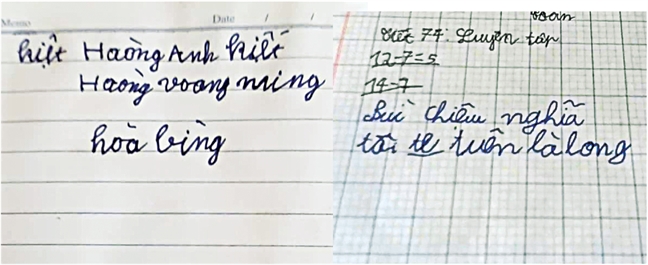 Memo Date / /
kiệt Haòng Anh kiết
Haòng voang ming
hòa bìng
toán
tiết 74: Luyện tập
12-7=5
14-7
Buì chiêu nghĩã
tôi tè tuên là long